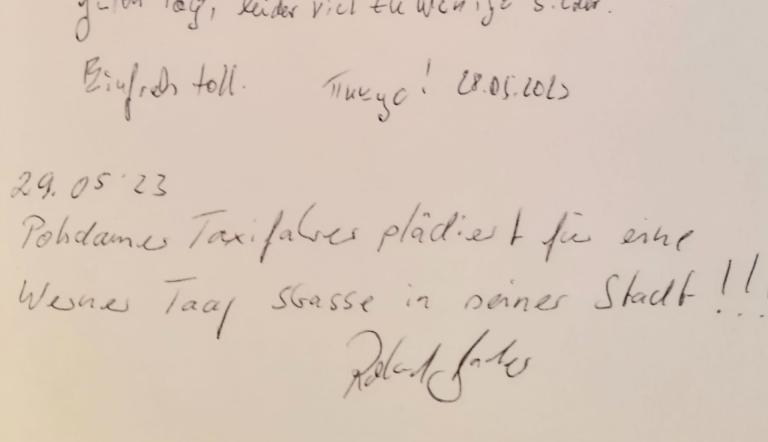 guten Tag, leider viel zu wenige Bilder.
Einfach toll. ! 28.05.2023
29.05.23
Potsdamer Taxifahrer plädiert für eine
Werner Taag Strasse in seiner Stadt!!
Roland